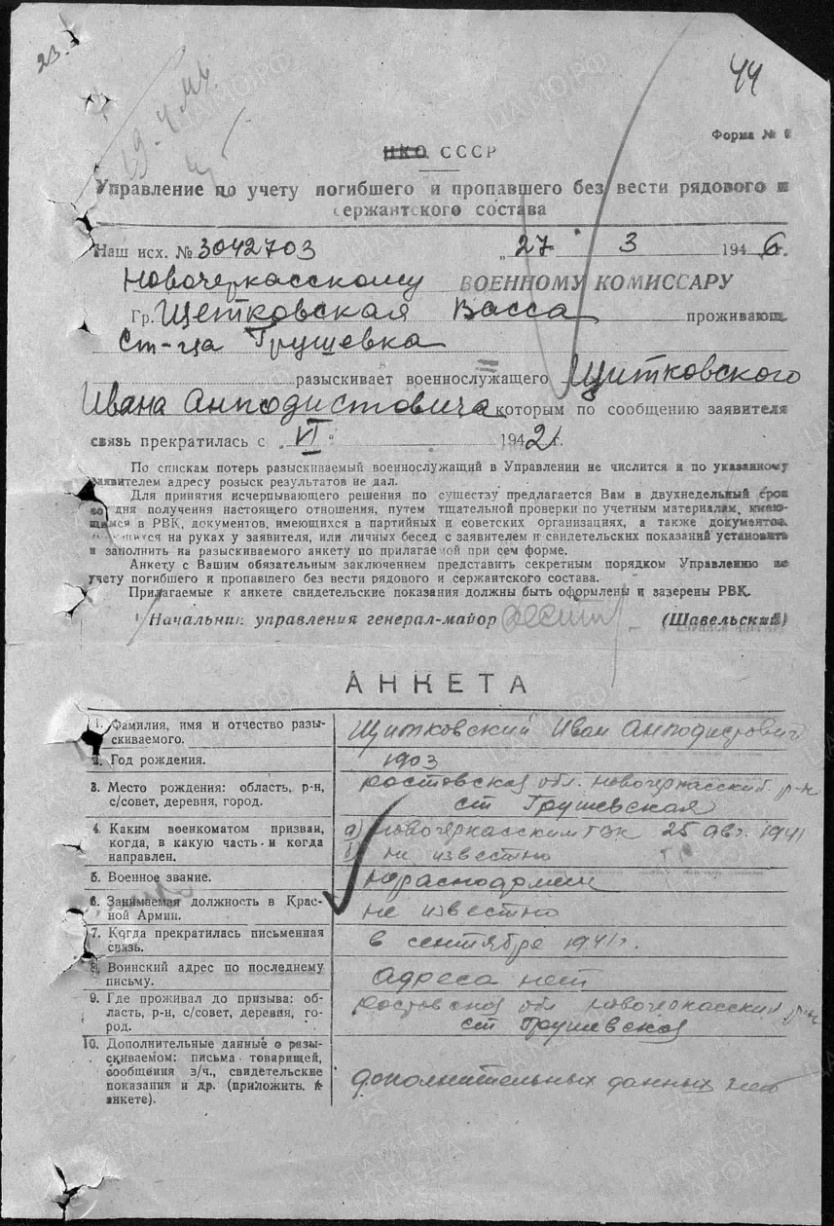 23.
44
19.4.44
Форма № 6
НКО СССР
Управление по учету погибшего и пропавшего без вести рядового и
сержантского состава
Наш исх. № 3042703 „27“ 3 1946 г.
Новочеркасскому ВОЕННОМУ КОМИССАРУ
Гр. Щетковская Васса проживающ.
Ст-ца Грушевка
разыскивает военнослужащего Щитковского
Ивана Анподистовича с которым по сообщению заявителя
связь прекратилась с „VI“ 1942 г.
По спискам потерь разыскиваемый военнослужащий в Управлении не числится и по указанному
заявителем адресу розыск результатов не дал.
Для принятия исчерпывающего решения по существу предлагается Вам в двухнедельный срок
со дня получения настоящего отношения, путем тщательной проверки по учетным материалам, имею-
щимся в РВК, документов, имеющихся в партийных и советских организациях, а также документов,
имеющихся на руках у заявителя, или личных бесед с заявителем и свидетельских показаний установить
и заполнить на разыскиваемого анкету по прилагаемой при сем форме.
Анкету с Вашим обязательным заключением представить секретным порядком Управлению по
учету погибшего и пропавшего без вести рядового и сержантского состава.
Прилагаемые к анкете свидетельские показания должны быть оформлены и заверены РВК.
Начальник управления генерал-майор (Шавельский)
АНКЕТА
1. Фамилия, имя и отчество разы-
скиваемого.
Щитковский Иван Анподистович
2. Год рождения.
1903
3. Место рождения: область, р-н,
с/совет, деревня, город.
Ростовская обл. Новочеркасский р-н
ст Грушевская
4. Каким военкоматом призван,
когда, в какую часть и когда
направлен.
а) Новочеркасским ГВК 25 авг. 1941
не известно
5. Военное звание.
Красноармеец
6. Занимаемая должность в Крас-
ной Армии.
не известно
7. Когда прекратилась письменная
связь.
в сентябре 1941 г.
8. Воинский адрес по последнему
письму.
адреса нет
9. Где проживал до призыва: об-
ласть, р-н, с/совет, деревня, го-
род.
Ростовская обл Новочеркасский р-н
ст Грушевская
10. Дополнительные данные о разы-
скиваемом: письма товарищей,
сообщения з/ч., свидетельские
показания и др. (приложить к
анкете).
дополнительных данных нет